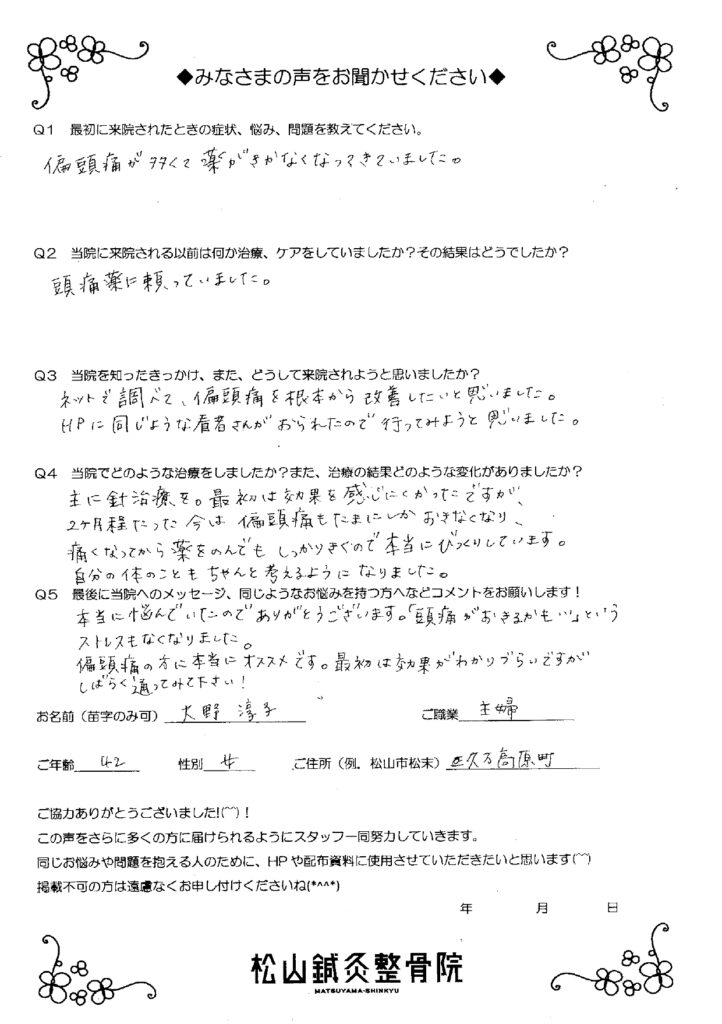 ◆みなさまの声をお聞かせください◆
Q1 最初に来院されたときの症状、悩み、問題を教えてください。
偏頭痛が多くて薬がきかなくなってきていました。
Q2 当院に来院される以前は何か治療、ケアをしていましたか?その結果はどうでしたか?
頭痛薬に頼っていました。
Q3 当院を知ったきっかけ、また、どうして来院されようと思いましたか?
ネットで調べて、偏頭痛を根本から改善したいと思いました。
HPに同じような患者さんがおられたので行ってみようと思いました。
Q4 当院でどのような治療をしましたか?また、治療の結果どのような変化がありましたか?
主に針治療を。最初は効果を感じにくかったですが、
2ヶ月程たった今は偏頭痛もたまにしかおきなくなり、
痛くなってから薬をのんでもしっかりきくので本当にびっくりしています。
自分の体のこともちゃんと考えるようになりました。
Q5 最後に当院へのメッセージ、同じようなお悩みを持つ方へなどコメントをお願いします!
本当に悩んでいたのでありがとうございます。「頭痛がおきるかも…」という
ストレスもなくなりました。
偏頭痛の方に本当にオススメです。最初は効果がわかりづらいですが
しばらく通ってみて下さい!
お名前(苗字のみ可) 大野 淳子 ご職業 主婦
ご年齢 42 性別 女 ご住所(例. 松山市松末) 久万高原町
ご協力ありがとうございました!(⌒⌒)!
この声をさらに多くの方に届けられるようにスタッフ一同努力していきます。
同じお悩みや問題を抱える人のために、HPや配布資料に使用させていただきたいと思います(⌒⌒)
掲載不可の方は遠慮なくお申し付けくださいね(*^^*)
年 月 日
松山鍼灸整骨院
MATSUYAMA-SHINKYU